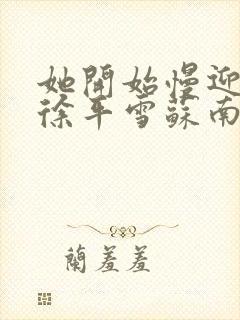 她開始慢迎
徐平雪蘇南
蘭羞羞